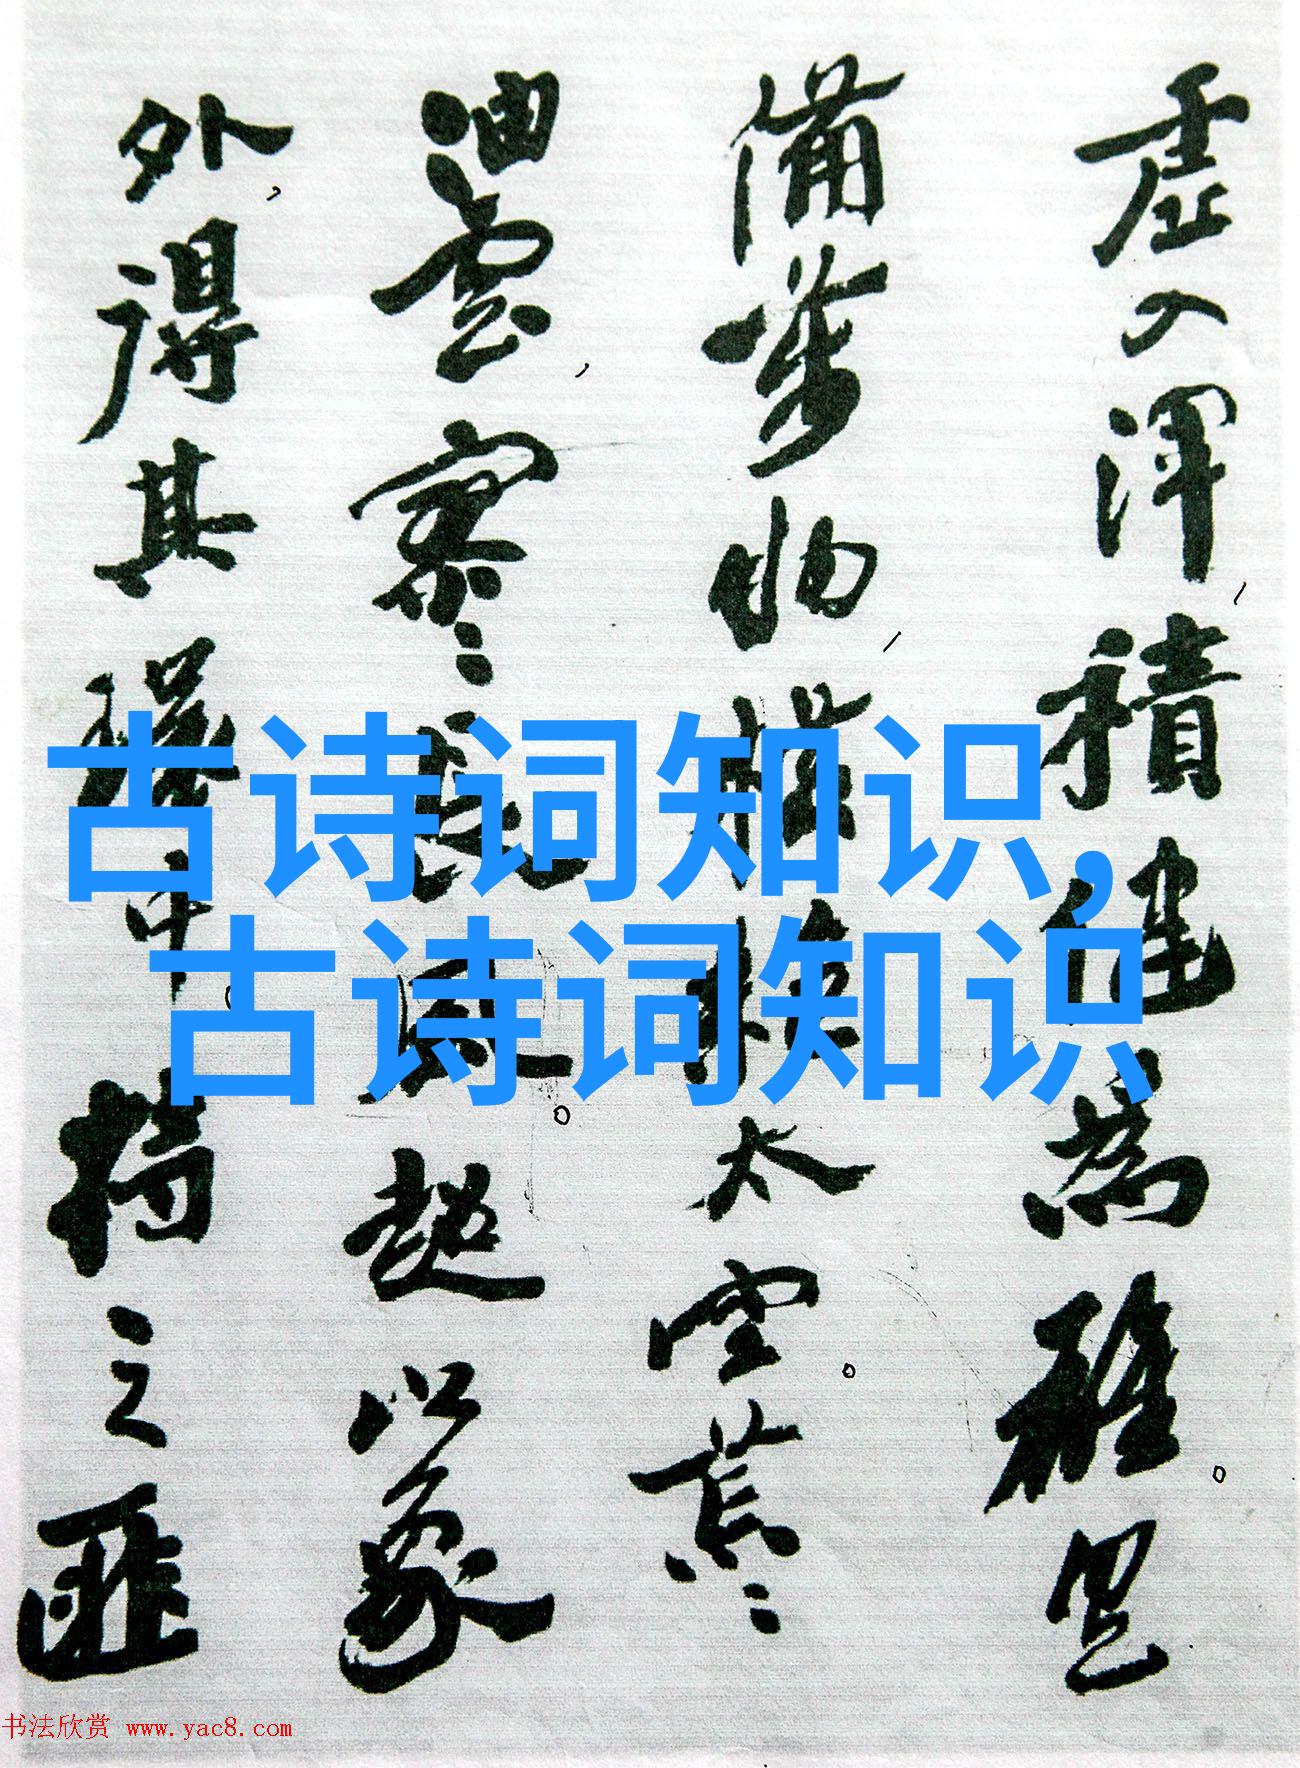 虛入渾，積健為雄。具
備萬物，橫絕太空。荒々
油雲，寥々長風。超以象
外，得其環中。持之匪
古诗词知识,
古诗词知识
书法欣赏 www.yac8.com